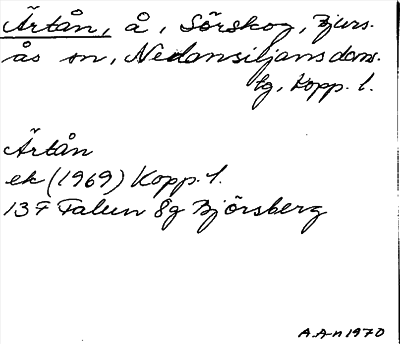 Ärtån, å, Sörskog, Bjurs-
ås sn, Nedansiljans doms.
lg, Kopp. l.
Ärtån
ek (1969) Kopp. l.
13 F Falun 8g Björsberg
A.A-n 1970